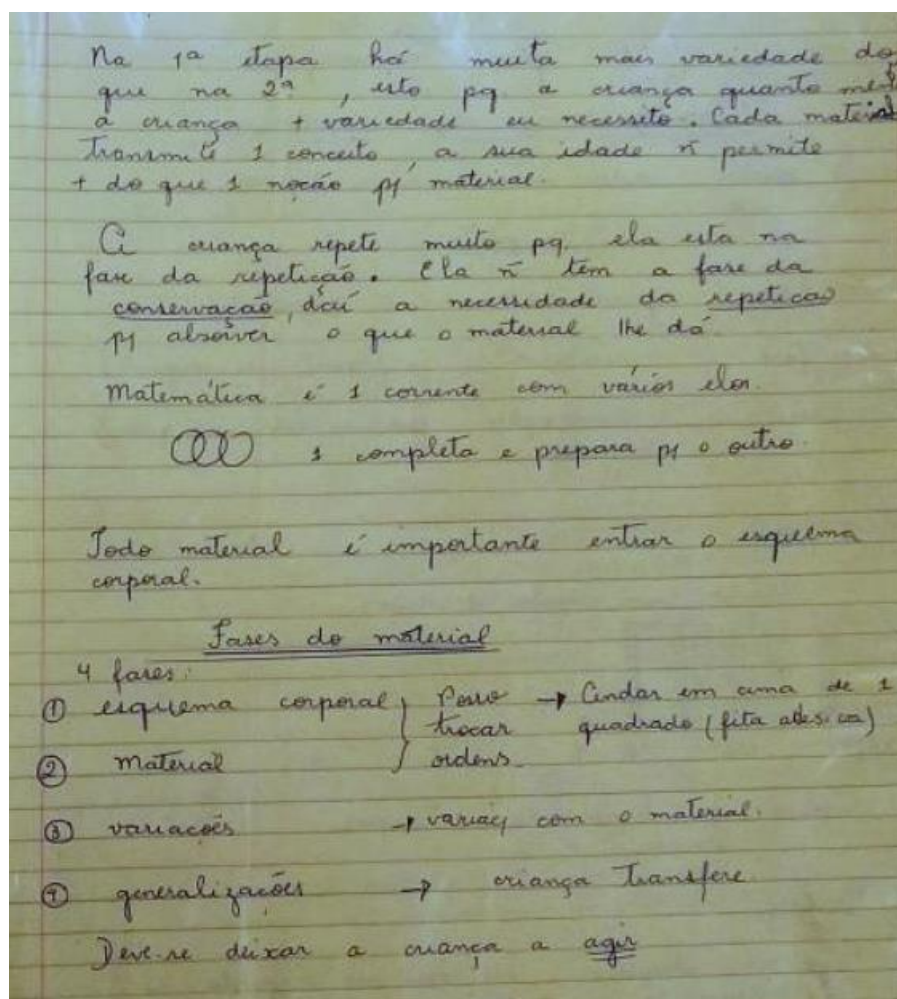 Na 1ª etapa há muita mais variedade do
que na 2ª, isto pq a criança quanto
a criança + variedade eu necessito. Cada material
transmite 1 conceito, a sua idade ñ permite
+ do que 1 noção p/ material.
A criança repete muito pq. ela esta na
fase da repetição. Ela ñ tem a fase da
conservação, daí a necessidade da repetição
p/ absorver o que o material lhe dá.
Matemática é 1 corrente com vários elos.
1 completa e prepara p/ o outro.
Todo material é importante entrar o esquema
corporal.
Fases do material
4 fases:
① esquema corporal } Posso → Andar em cima de 1
trocar quadrado (fita adesiva)
② material ordens
③ variações → com o material.
④ generalizações → criança transfere
Deve-se deixar a criança a agir